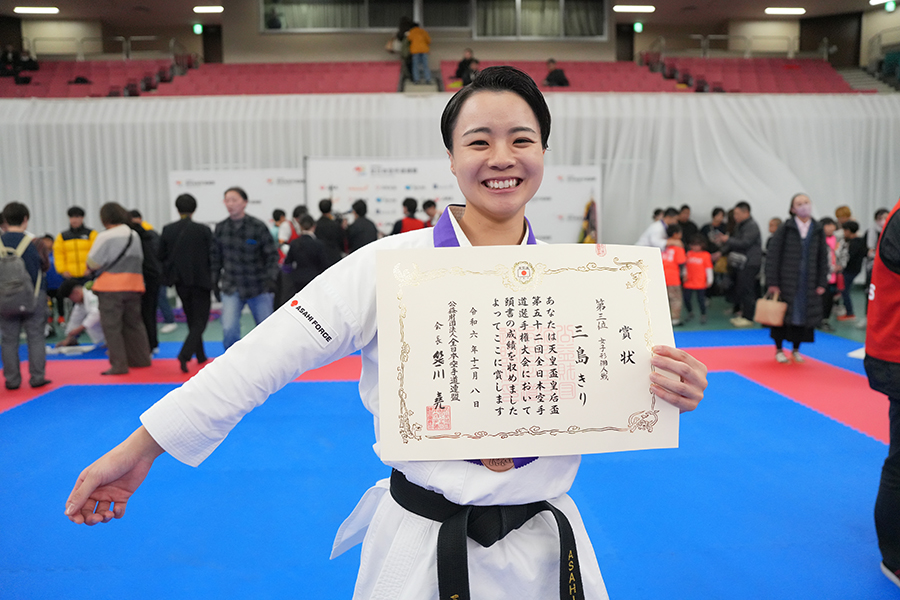 賞状
第三位 女子形個人戦
三島きり
あなたは天皇盃皇后盃
第五十二回全日本空手
道選手権大会において
頭書の成績を収めました
よってここに賞します
令和六年十二月八日
公益財団法人全日本空手道連盟
会長
ASAHI FORCE
ASAHI